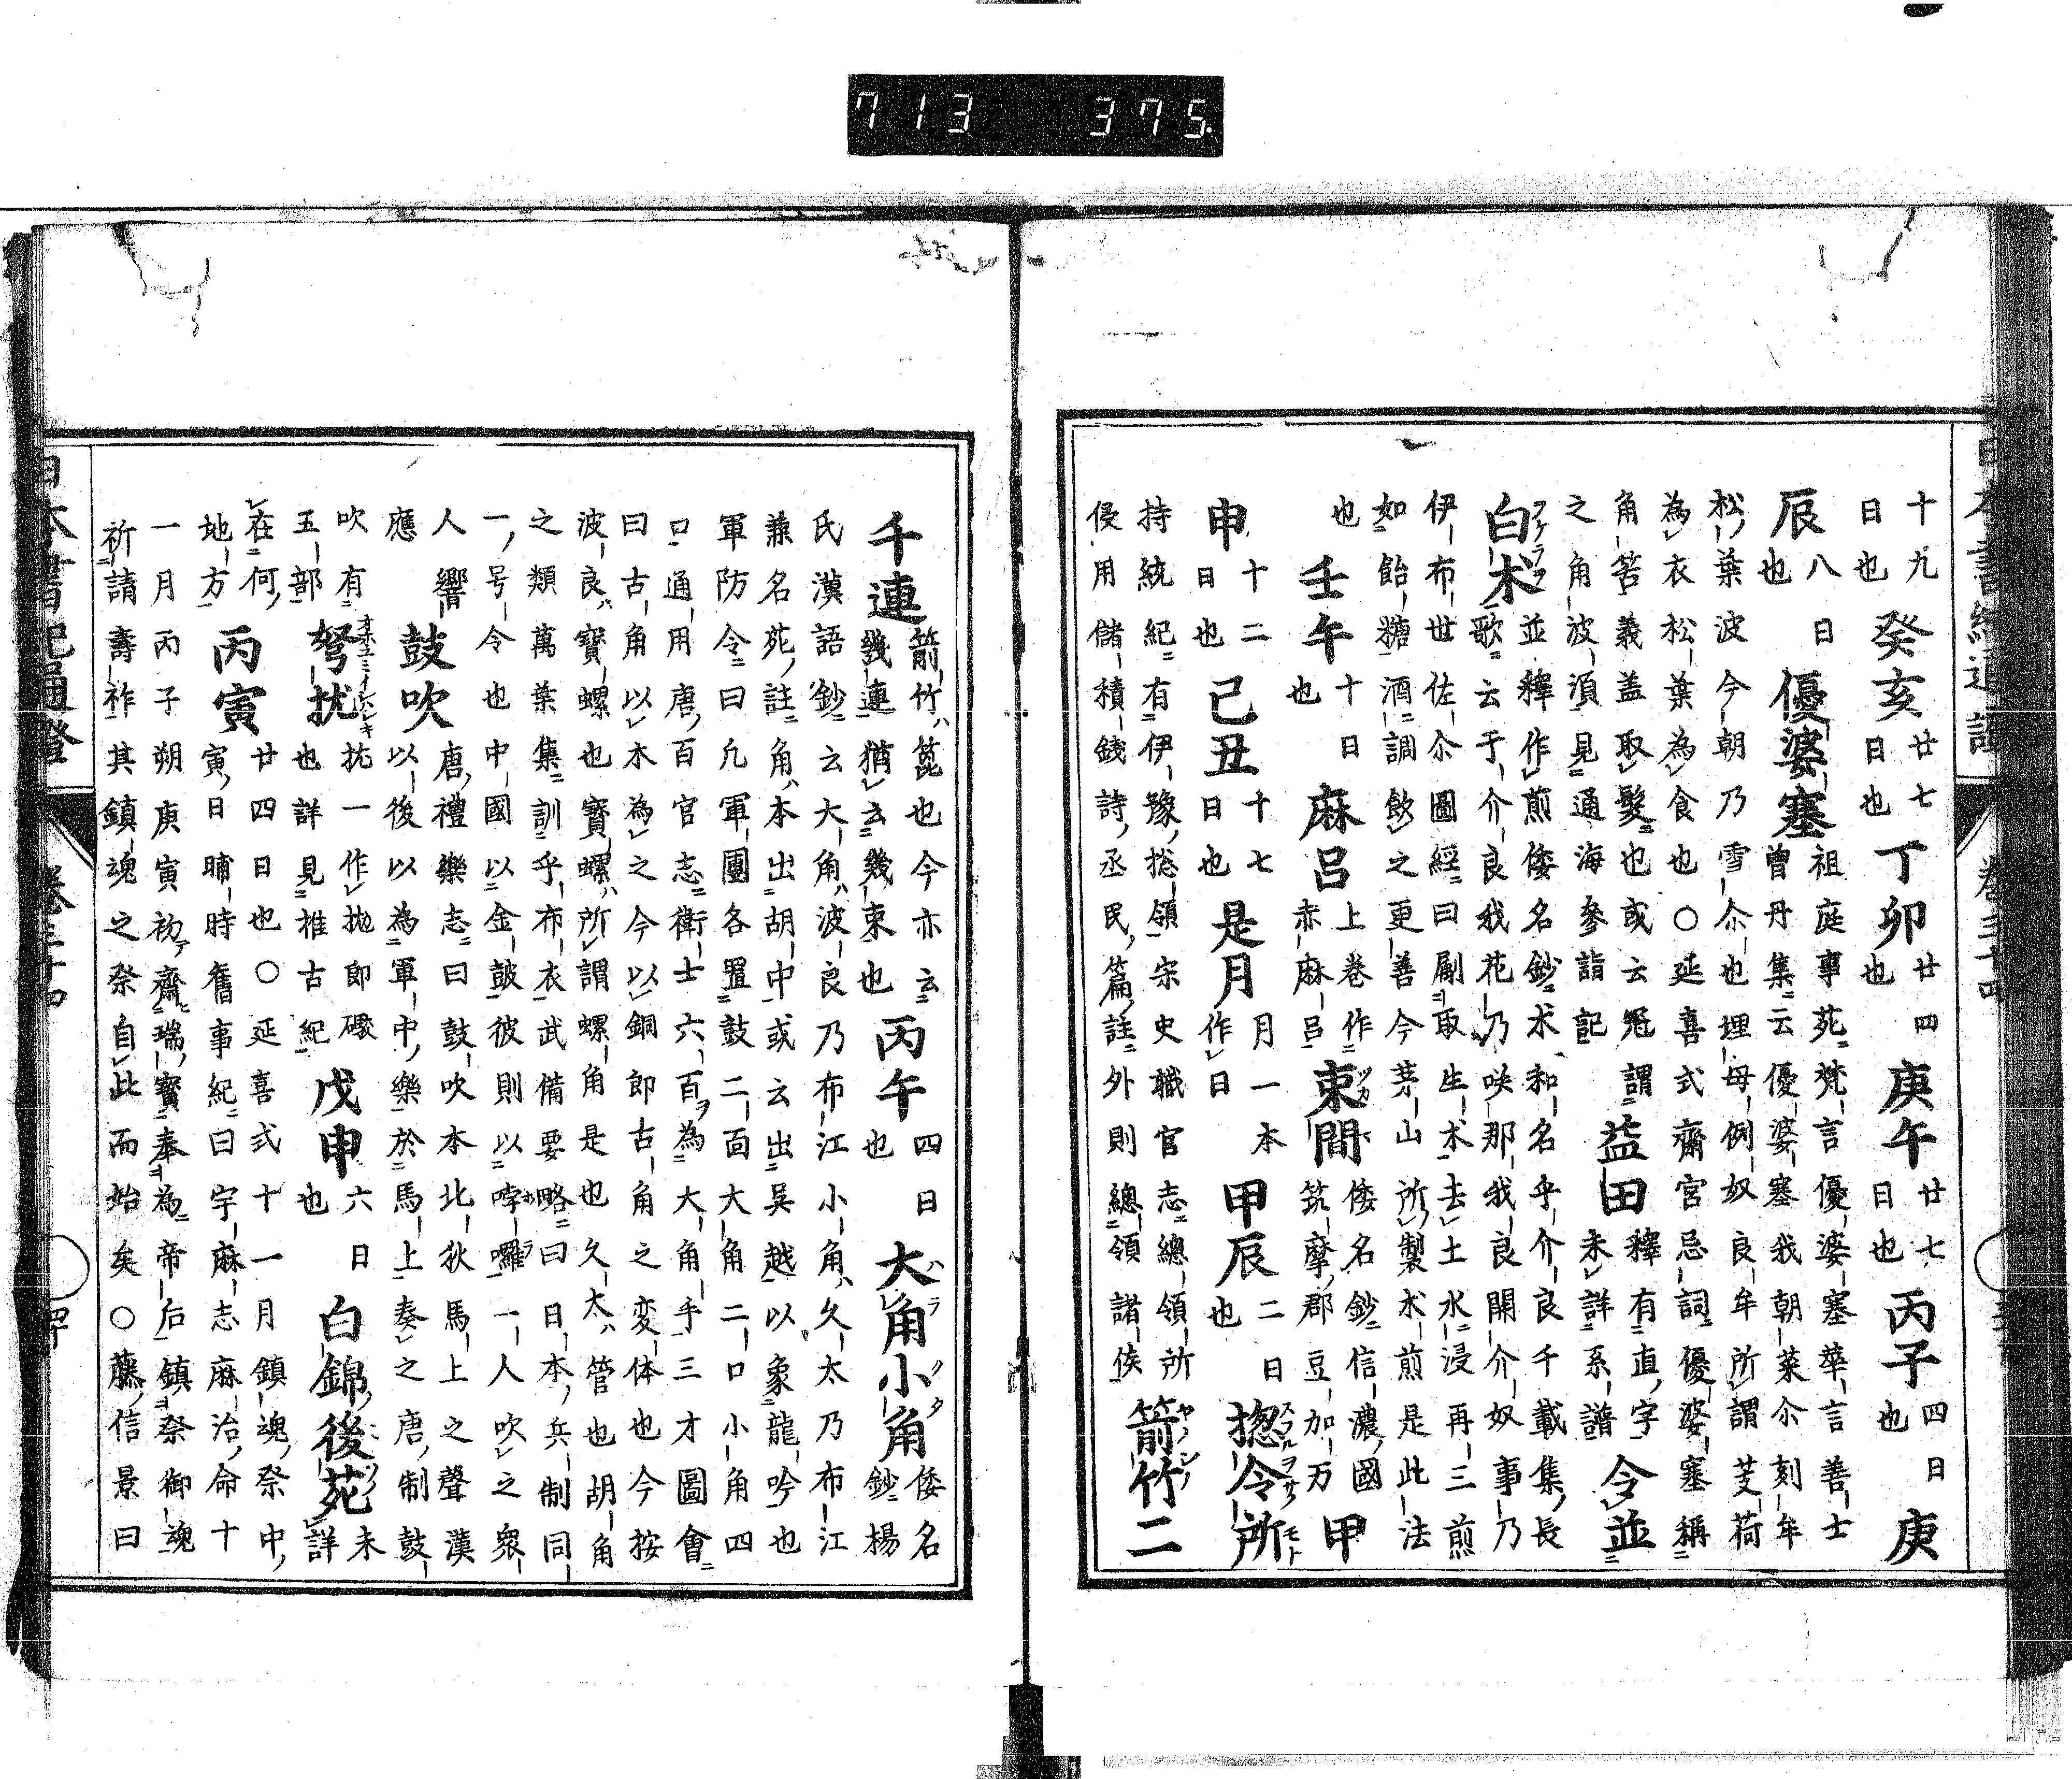 十九日也 癸亥 廿七日也 丁卯 廿四也 庚午 廿七日也 丙子 四日也 庚
辰 八日也 優婆塞 祖庭事苑梵言優婆塞華言善士
曾丹集云優婆塞我朝菜尒刻牟
松葉波今朝乃雪尒也埋母例奴良牟所謂芰荷
為衣松葉為食也○延喜式齋宮忌詞優婆塞稱
角筈義盖取髮也或云冠謂
之角波須見通海參詣記 益田 釋有直字未詳系譜 令並
白朮 並釋作煎倭名鈔朮和名乎介良千載集長
歌云于介良我花乃咲那我良開介奴事乃
伊布世佐尒圖經曰剮取生朮去土水浸再三煎
如飴糖酒調飲之更善今茅山所製朮煎是此法
也 壬午 十日也 麻呂 上巻作赤麻呂 束間 倭名鈔信濃國筑摩郡豆加万 甲
申 十二日也 己丑 十七日也 是月 月一本作日 甲辰 二日也 捴令所
持統紀有伊豫捴領宋史職官志總領所
侵用儲積錢詩丞民篇註外則總領諸侯 箭竹二
千連 箭竹ハ箟也今亦云幾連猶云幾束也 丙午 四日也 大角小角 倭名鈔楊
氏漢語鈔云大角ハ波良乃布江小角ハ久太乃布江
兼名苑註角ハ本出胡中或云出吳越以象龍吟也
軍防令曰凢軍團各置鼓二面大角二口小角四
口通用唐百官志衛士六百為大角手三才圖會
曰古角以木為之今以銅即古角之変体也今按
波良ハ寶螺也寶螺ハ所謂螺角是也久太ハ管也胡角
之類萬葉集訓乎布衣武備要略曰日本兵制同
一号令也中國以金鼓彼則以哱囉一人吹之衆
人響應 鼓吹 唐禮樂志曰鼓吹本北狄馬上之聲漢
以後以為軍中樂於馬上奏之唐制鼓
吹有五部 弩抗 抗一作拋即礮也詳見推古紀 戊申 六日也 白錦後苑 未詳
在何地方 丙寅 廿四日也○延喜式十一月鎮魂祭中
寅日晡時舊事紀曰宇麻志麻治命十
一月丙子朔庚寅初齋瑞寶奉為帝后鎮祭御魂
祈請壽祚其鎮魂之祭自此而始矣○藤信景曰
日本書紀通證
卷三十四
713 375